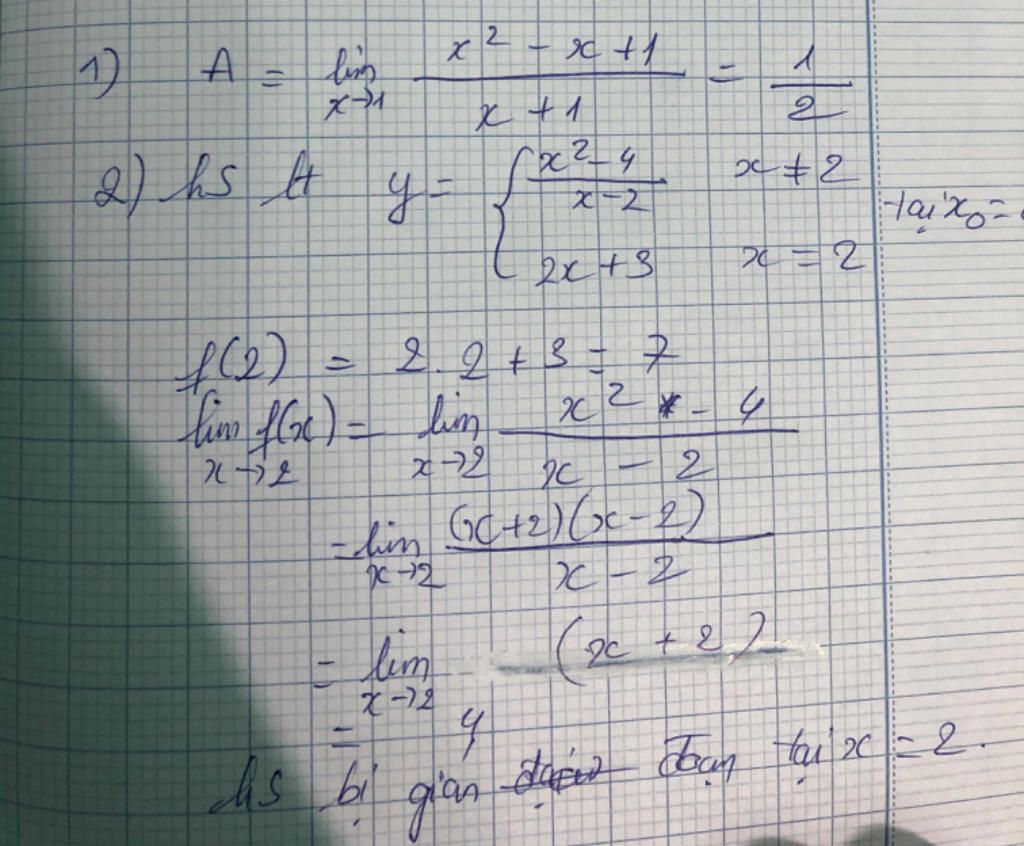 1) A = lim x→1 (x² - x + 1)/(x + 1) = 1/2
2) hs lt y = { (x² - 4)/(x - 2) x ≠ 2 tại x₀ =
2x + 3 x = 2
f(2) = 2.2 + 3 = 7
lim x→2 f(x) = lim x→2 (x² - 4)/(x - 2)
= lim x→2 (x+2)(x-2)/(x - 2)
= lim x→2 (x + 2)
= 4
hs bị gián đoạn tại x = 2.